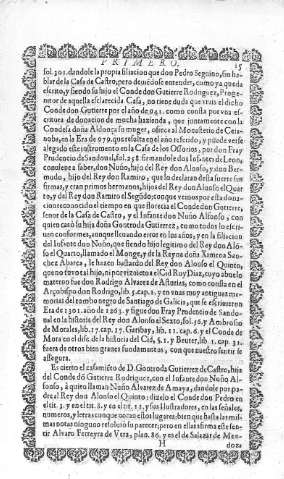 PRIMERO. 15
fol. 301. dandole la propia filiacion que don Pedro Seguino, sin ha-
blar de la Casa de Castro, pero deuiòse entender, como ya queda
escrito, y siendo su hijo el Conde don Gutierre Rodriguez, Proge-
nitor de aquella esclarecida Casa, no tiene duda que viuia el dicho
Conde don Gutierre por el año de 941. como consta por vna es-
critura de donacion de mucha hazienda, que juntamente con la
Condesa doña Aldonça su muger, ofrece al Monasterio de
en la Era de 979. que resulta en el año referido, y puede ver-se
alegado este instrumento en la Casa de los Ossorios, por don Fray
Prudencio de Sandoual, fol. 258. firmandole dos Infantes de Leon,
conuiene a saber, don Nuño, hijo del Rey don Alonso, y don Ber-
mudo, hijo del Rey don Ramiro, que se declaran desta suerte sus
firmas, y eran primos hermanos, hijos del Rey don Alonso el Quar-
to, y del Rey don Ramiro el Segūdo; conque vemos por esta dona-
cion reconocido el tiempo en que florecia el Conde don Gutierre,
señor de la Casa de Castro, y el Infante don Nuño Alfonso, con
quien casò su hija doña Gontroda Gutierrez, como todos lo escri-
uen conformes, aunque errando en los años, y en la filiacion
del Infante don Nuño, que siendo hijo legitimo del Rey don Alō-
so el Quarto, llamado el Monge, y de la Reyna doña Ximena San-
chez Abarca, le hazen bastardo del Rey don Alonso el Quinto,
que no tuuo tal hijo, ni por èl visto el Cid Ruy Diaz, cuyo abuelo
materno fue don Rodrigo Aluarez de Asturias, como consta en el
Arçobispo don Rodrigo, lib. 5. cap. 1. y en vnas muy antiguas me-
morias del tombo negro de Santiago de Galicia, que se escriuieron
Era de 1301. año de 1263. y sigue don Fray Prudencio de Sando-
ual en la historia del Rey don Alonso el Sexto, fol. 50. y Ambrosio
de Morales, lib. 17. cap. 17. Garibay, lib. 11. cap. 6. y el Conde de
Mora en el disc. de la historia del Cid, §. 1. y Beuter, lib. 1. cap. 31.
fuera de otros bien graues fundamentos, con que nuestro sentir se
assegura.
Es cierto el casamiēto de D. Gontroda Gutierrez de Castro, hija
del Conde dō Gutierre Rodriguez, con el Infante don Nuño Al-
fonso, à quien llaman Nuño Aluarez de Amaya, dandole por pa-
dre al Rey don Alonso el Quinto: dizelo el Conde don Pedro en
el tit. 3. y en el tit. 8. y en el tit. 11. y sus Ilustradores, en las señales,
numeros, y letras conque notan estos lugares; bien que hasta las mis-
mas notas ninguno reboluiò su parecer; pero en ellas firma este sen-
tir Aluaro Ferreyra de Vera, plan. 86. y en el de Salazar de Men-
H doza